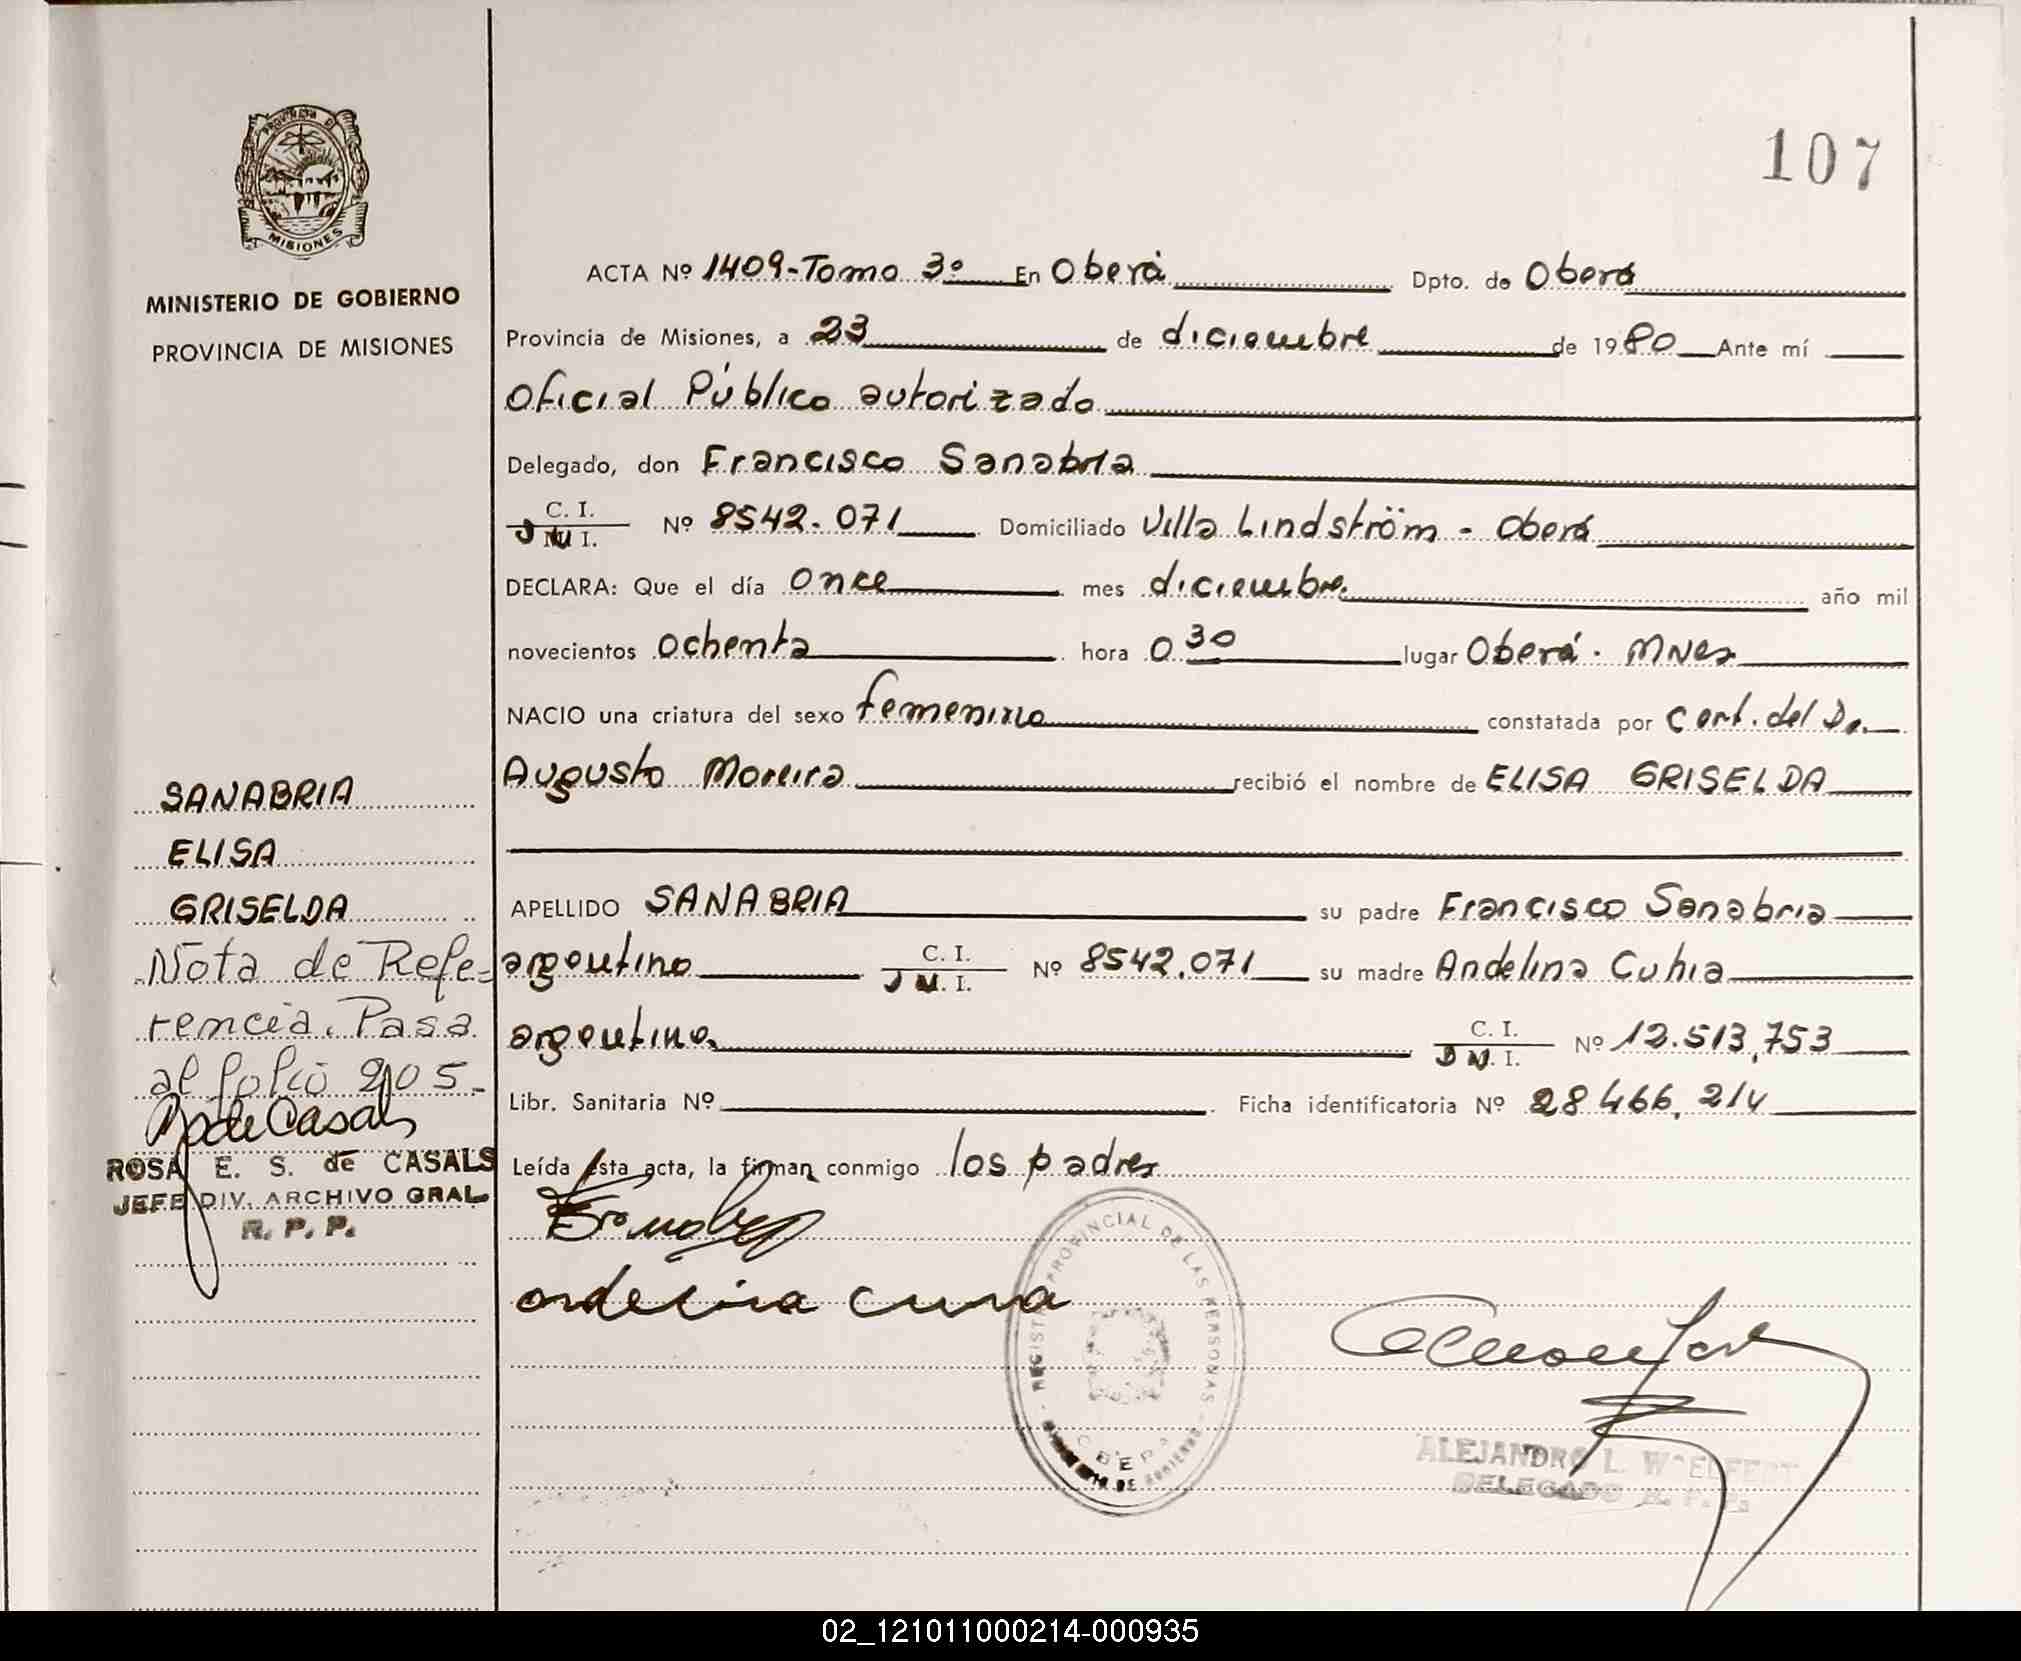 PROVINCIA DE
MISIONES
MINISTERIO DE GOBIERNO
PROVINCIA DE MISIONES
107
ACTA Nº 1409-Tomo 3º En Oberá Dpto. de Oberá
Provincia de Misiones, a 23 de diciembre de 1980 Ante mí
Oficial Público autorizado
Delegado, don Francisco Sanabria
C. I.
D N I. Nº 8542.071 Domiciliado Villa Lindström - Oberá
DECLARA: Que el día once mes diciembre año mil
novecientos ochenta hora 0 30 lugar Oberá. Mnes
NACIO una criatura del sexo femenino constatada por Cert. del Dr.
Augusto Moreira recibió el nombre de ELISA GRISELDA
APELLIDO SANABRIA su padre Francisco Sanabria
argentino C. I. Nº 8542.071 su madre Andelina Cuhia
M. I.
argentina C. I. Nº 12.513,753
D N. I.
Libr. Sanitaria Nº Ficha identificatoria Nº 28 466, 214
Leída esta acta, la firman conmigo los padres
SANABRIA
ELISA
GRISELDA
Nota de Refe-
rencia. Pasa
al folio 205-
R de Casals
ROSA E. S. de CASALS
JEFE DIV. ARCHIVO GRAL
R. P. P.
REGISTRO PROVINCIAL DE LAS PERSONAS
OBERA
MINISTERIO DE GOBIERNO
ALEJANDRO L. WOELFERT
DELEGADO R. P. P.
02_121011000214-000935